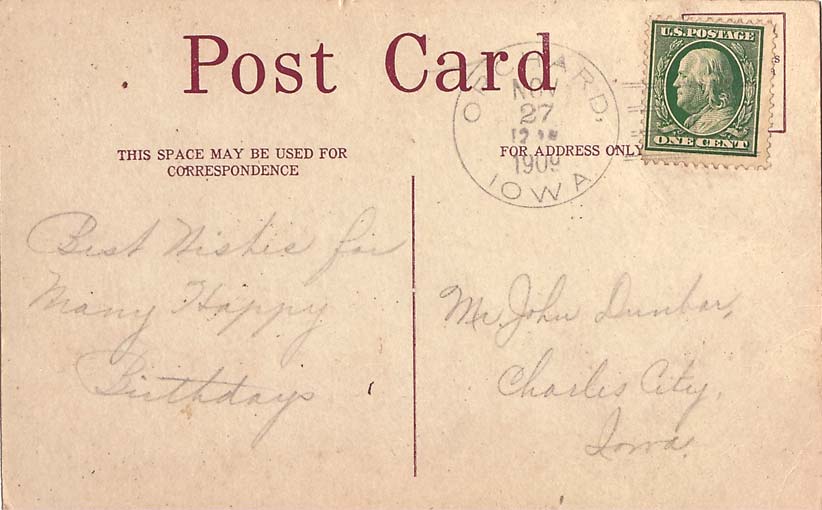 Post Card
THIS SPACE MAY BE USED FOR
CORRESPONDENCE
FOR ADDRESS ONLY
ORCHARD,
NOV
27
1909
IOWA
U.S. POSTAGE
ONE CENT
Best Wishes for
Many Happy
Birthdays
Mr. John Dunbar,
Charles City,
Iowa.